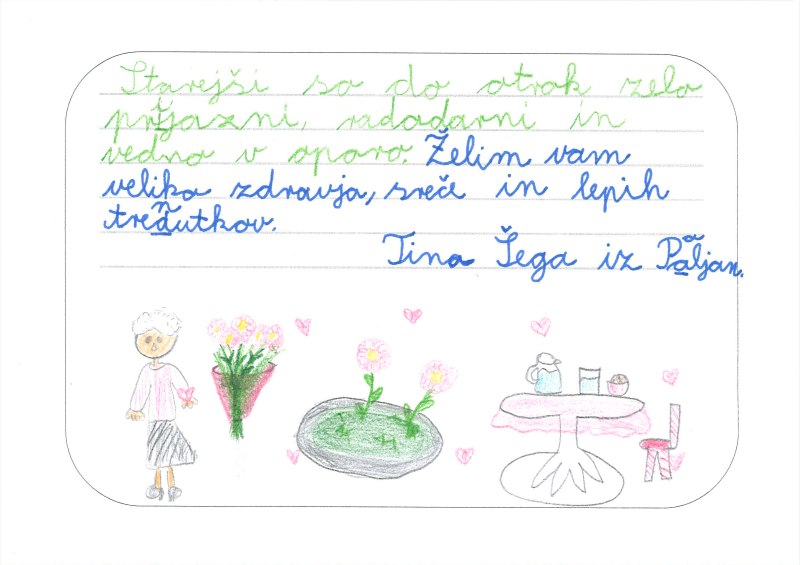 Starejši so do otrok zelo
prijazni, radodarni in
vedno v oporo. Želim vam
veliko zdravja, sreče in lepih
trenutkov.
Tina Šega iz Paljan.